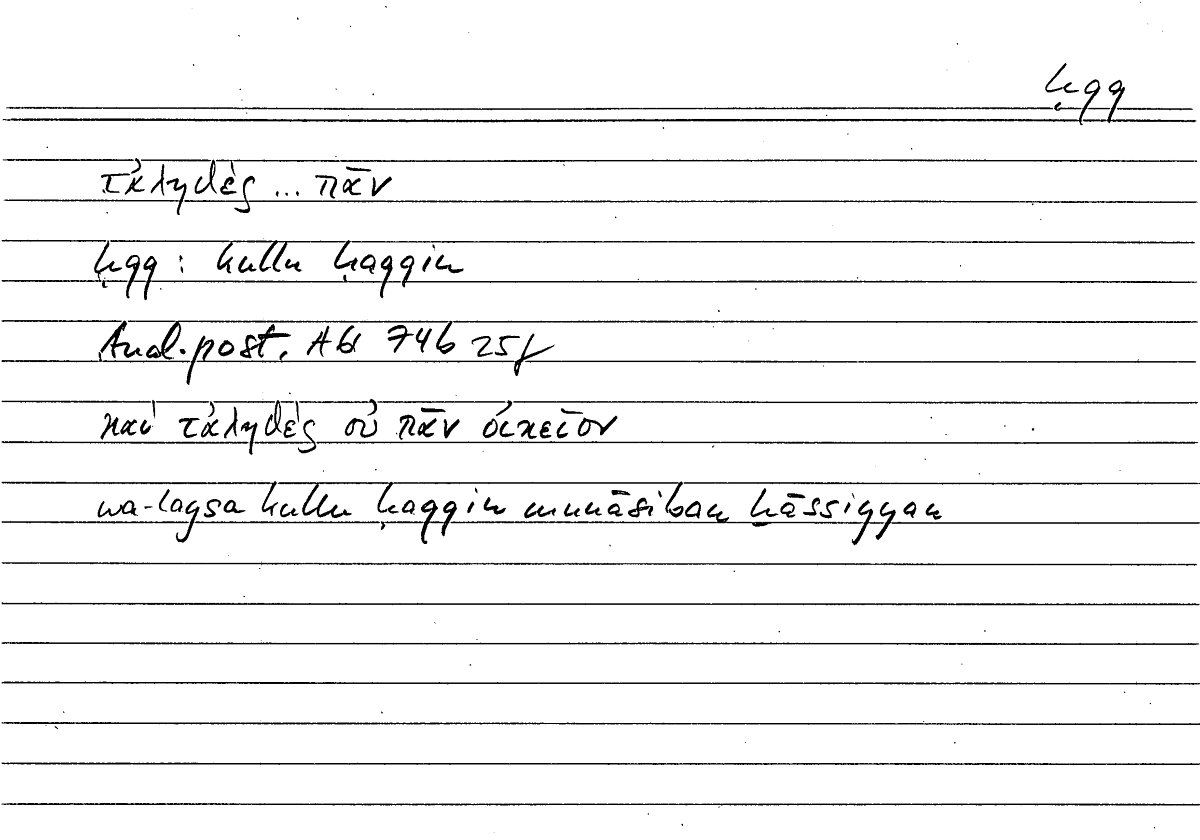 ḥqq
τἀληθὲς ... πᾶν
ḥqq : kullu ḥaqqin
Anal. post. A6 74b 25f
καὶ τἀληθὲς οὐ πᾶν οἰκεῖον
wa-laysa kullu ḥaqqin munāsiban ḫāssiyyan